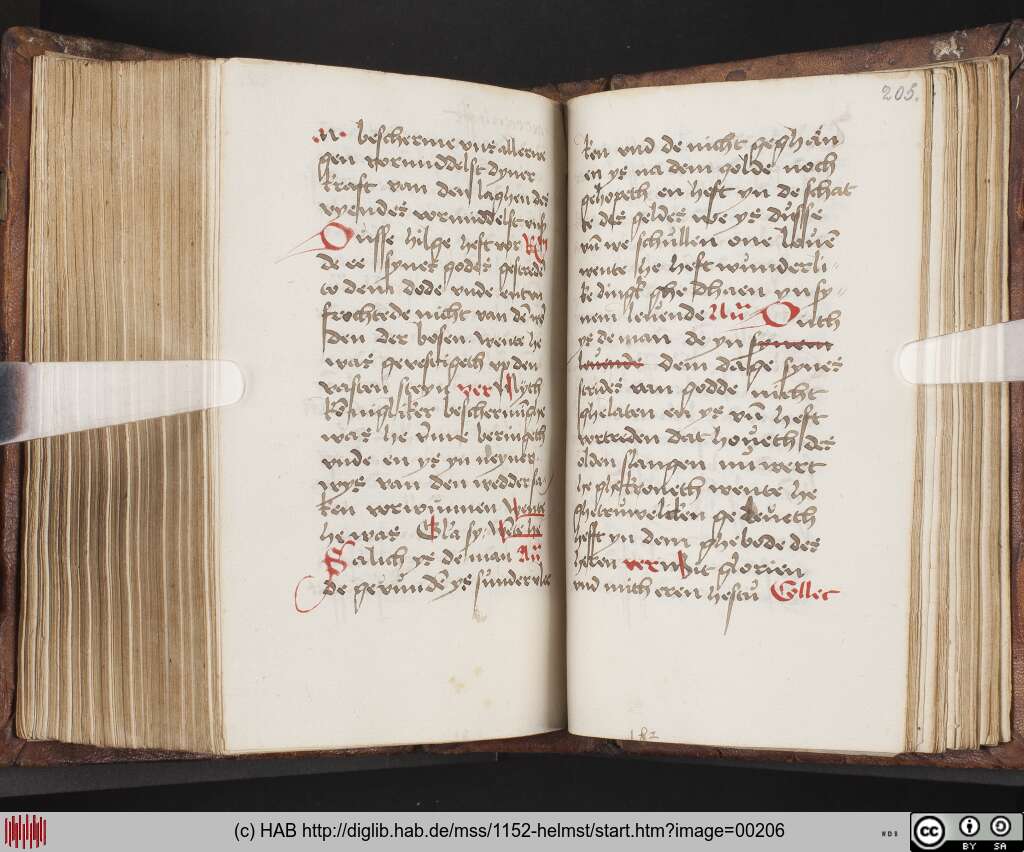 .N. bescherme uns allerne
gen vormiddelst dyner
kraft van den laghen des
vyendes vormiddelst unsz
Dusse hilge heft vor Rn
de ee synes godes gestrede
to dem dode unde en
frochtede nicht van den wo
den der bosen. wente he
was gevestigeth up den
vasten steyn ver Myth
konnigliker beschermunghe
was he umme beringeth
unde en ys yn neyner
wys van dem weddersa
ken vorwunnen Wente
he was Gla sy. Wente he
Salich ys de man Au
de gevunden ys sunder vlec
205.
ken und de nicht geghan
en ys na dem golde noch
gehopeth en heft yn de schat
te des geldes we ys dusse
un we schullen one loven
wente he heft wunderli
ke dingk ghedhaen yn sy
nem levende Au Desth
ys de man de yn synem
levende dem daghe synes
strides van godde nicht
ghelaten en ys un heft
vortreden dat hoveth des
olden slangen nu wert
he ghekroneth wente he
ghetruweliken geleveth
hefft yn dem ghebode des
heren ver Mit glorien
und mith eren hestu Collec
182
(c) HAB http://diglib.hab.de/mss/1152-helmst/start.htm?image=00206
WDB
cc BY SA